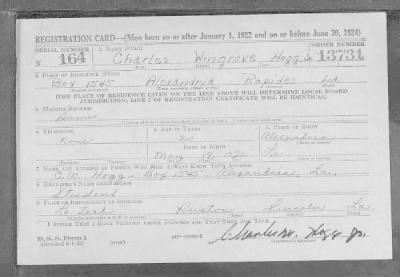 REGISTRATION CARD—(Men born on or after January 1, 1922 and on or before June 30, 1924)
SERIAL NUMBER 1. NAME (Print) ORDER NUMBER
N 164 Charles Wingrove Hogg Jr. 13731
2. PLACE OF RESIDENCE (Print)
Box 1545 Alexandria Rapides La
[THE PLACE OF RESIDENCE GIVEN ON THE LINE ABOVE WILL DETERMINE LOCAL BOARD
JURISDICTION; LINE 2 OF REGISTRATION CERTIFICATE WILL BE IDENTICAL]
3. MAILING ADDRESS
Same
4. TELEPHONE 5. AGE IN YEARS 6. PLACE OF BIRTH
None 20 Alexandria
DATE OF BIRTH
May 19, 1922 La.
7. NAME AND ADDRESS OF PERSON WHO WILL ALWAYS KNOW YOUR ADDRESS
C. W. Hogg - Box 1545 Alexandria, La.
8. EMPLOYER'S NAME AND ADDRESS
Student
9. PLACE OF EMPLOYMENT OR BUSINESS
La. Tech Ruston Lincoln La.
I AFFIRM THAT I HAVE VERIFIED ABOVE ANSWERS AND THAT THEY ARE TRUE.
D. S. S. Form 1
(over) Charles W. Hogg Jr.